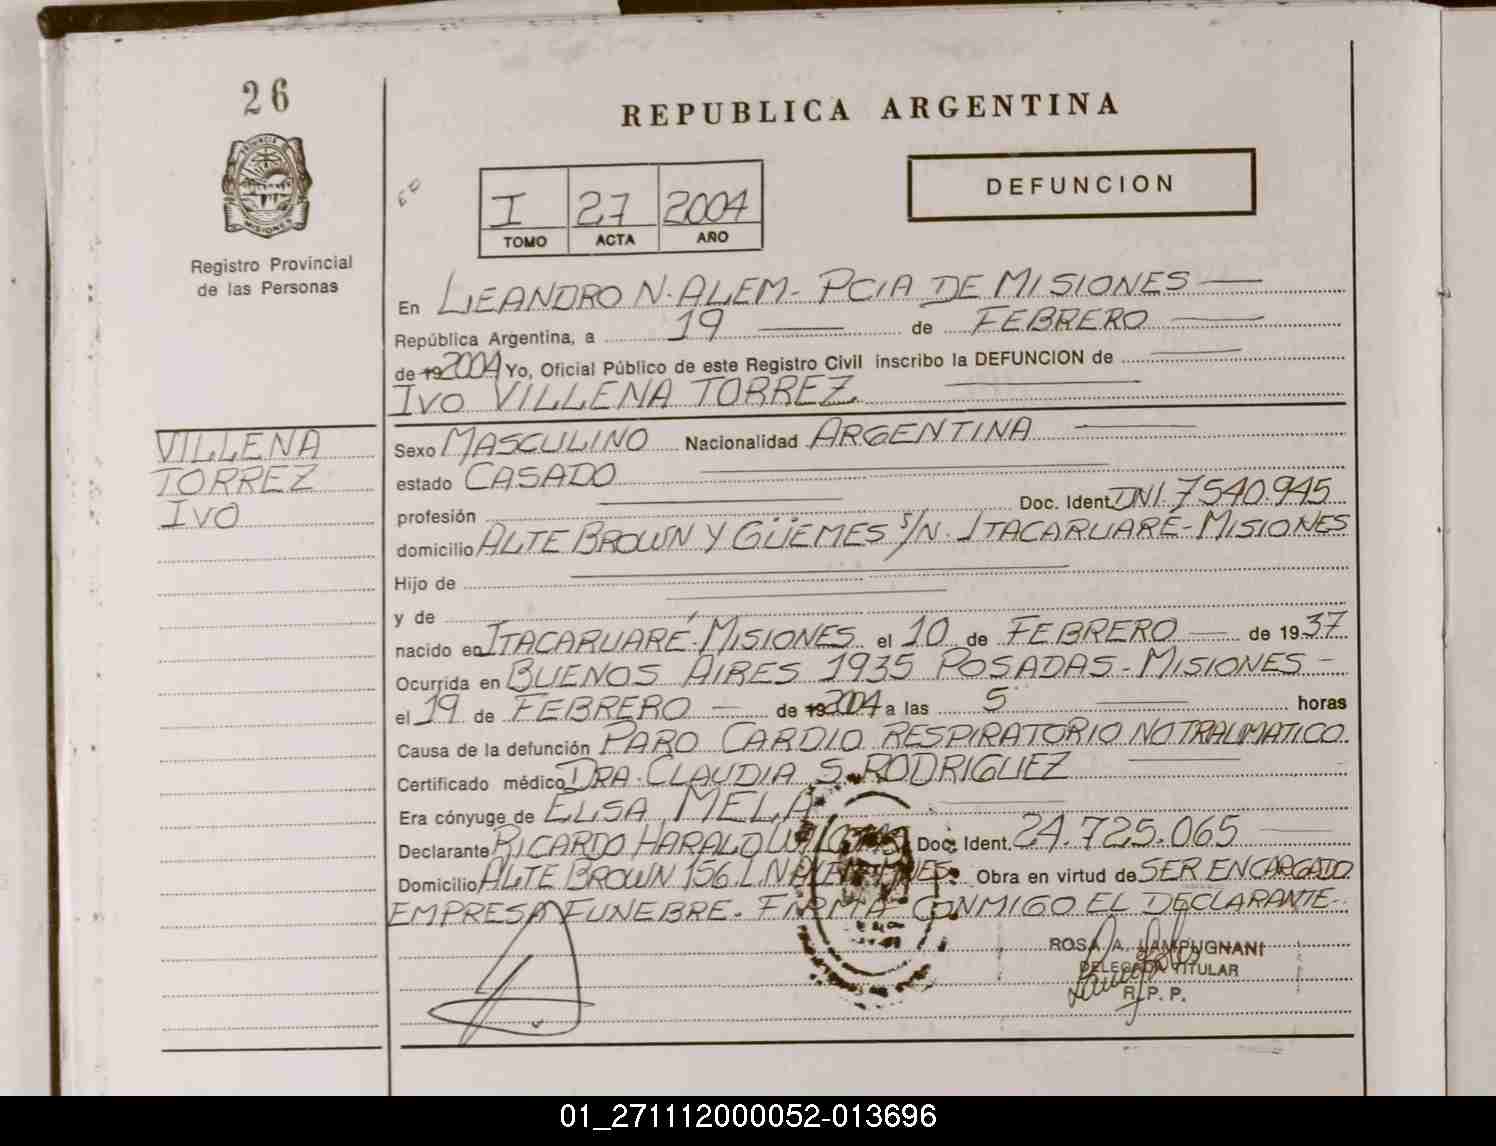 26
REPUBLICA ARGENTINA
PROVINCIA DE
MISIONES
Registro Provincial
de las Personas
I 27 2004
TOMO ACTA AÑO
DEFUNCION
En LEANDRO N. ALEM - PCIA DE MISIONES
República Argentina, a 19 de FEBRERO
de 19 2004 Yo, Oficial Público de este Registro Civil inscribo la DEFUNCION de
IVO VILLENA TORREZ
VILLENA
TORREZ
IVO
Sexo MASCULINO Nacionalidad ARGENTINA
estado CASADO
profesión Doc. Ident. DNI. 7540.945
domicilio ALTE BROWN Y GÜEMES S/N. ITACARUARÉ - MISIONES
Hijo de
y de
nacido en ITACARUARÉ - MISIONES el 10 de FEBRERO de 1937
Ocurrida en BUENOS AIRES 1935 POSADAS - MISIONES -
el 19 de FEBRERO de 19 2004 a las 5 horas
Causa de la defunción PARO CARDIO RESPIRATORIO NO TRAUMATICO.
Certificado médico DRA. CLAUDIA S. RODRIGUEZ
Era cónyuge de ELSA MELA
Declarante RICARDO HARALDO Doc. Ident. 24.725.065
Domicilio ALTE BROWN 156 L N ALEM Obra en virtud de SER ENCARGADO
EMPRESA FUNEBRE. FIRMA CONMIGO EL DECLARANTE-
ROSA A. LAMPUGNANI
DELEGADA TITULAR
R. P. P.
01_271112000052-013696